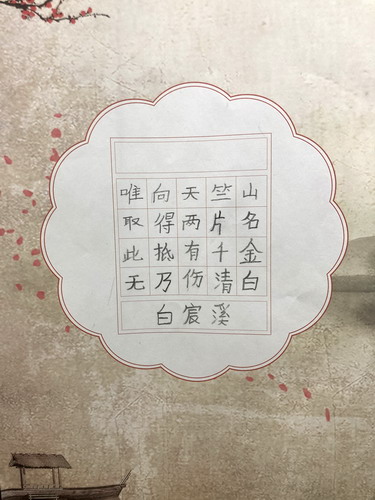 唯向天竺山
取得两片名
此抵有千金
无乃伤清白
白宸溪